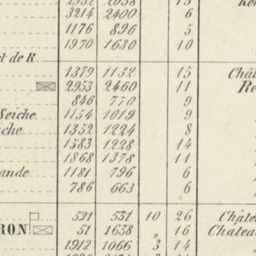 3214 2400 6
1176 896 5
1970 1630 10
de R
1379 1152 15 Chât
2953 2460 11 Re
846 770 9
Seiche 1154 1019 9
che 1352 1224 8
1583 1228 14
1868 1378 11
ande 1181 796 6
786 663 6
531 531 10 26 Châte
RON 51 1638 „ 16 Château
1912 1066 3 14